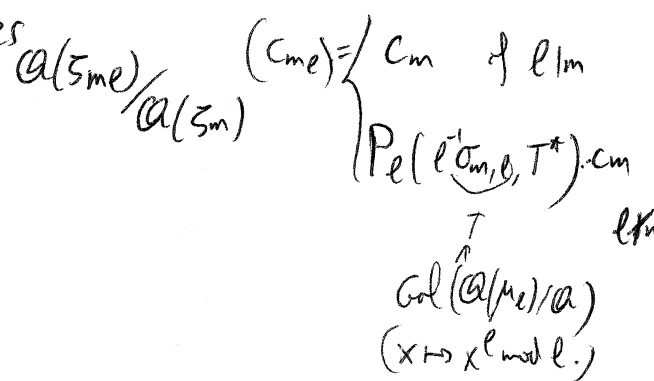 es Q(ζmℓ)/Q(ζm) (Cmℓ) = { Cm if ℓ|m
Pℓ(ℓ⁻¹σm,ℓ, T*)·cm ℓ∤m
↑
Gal(Q(μℓ)/Q)
(x ↦ x^ℓ mod ℓ.)